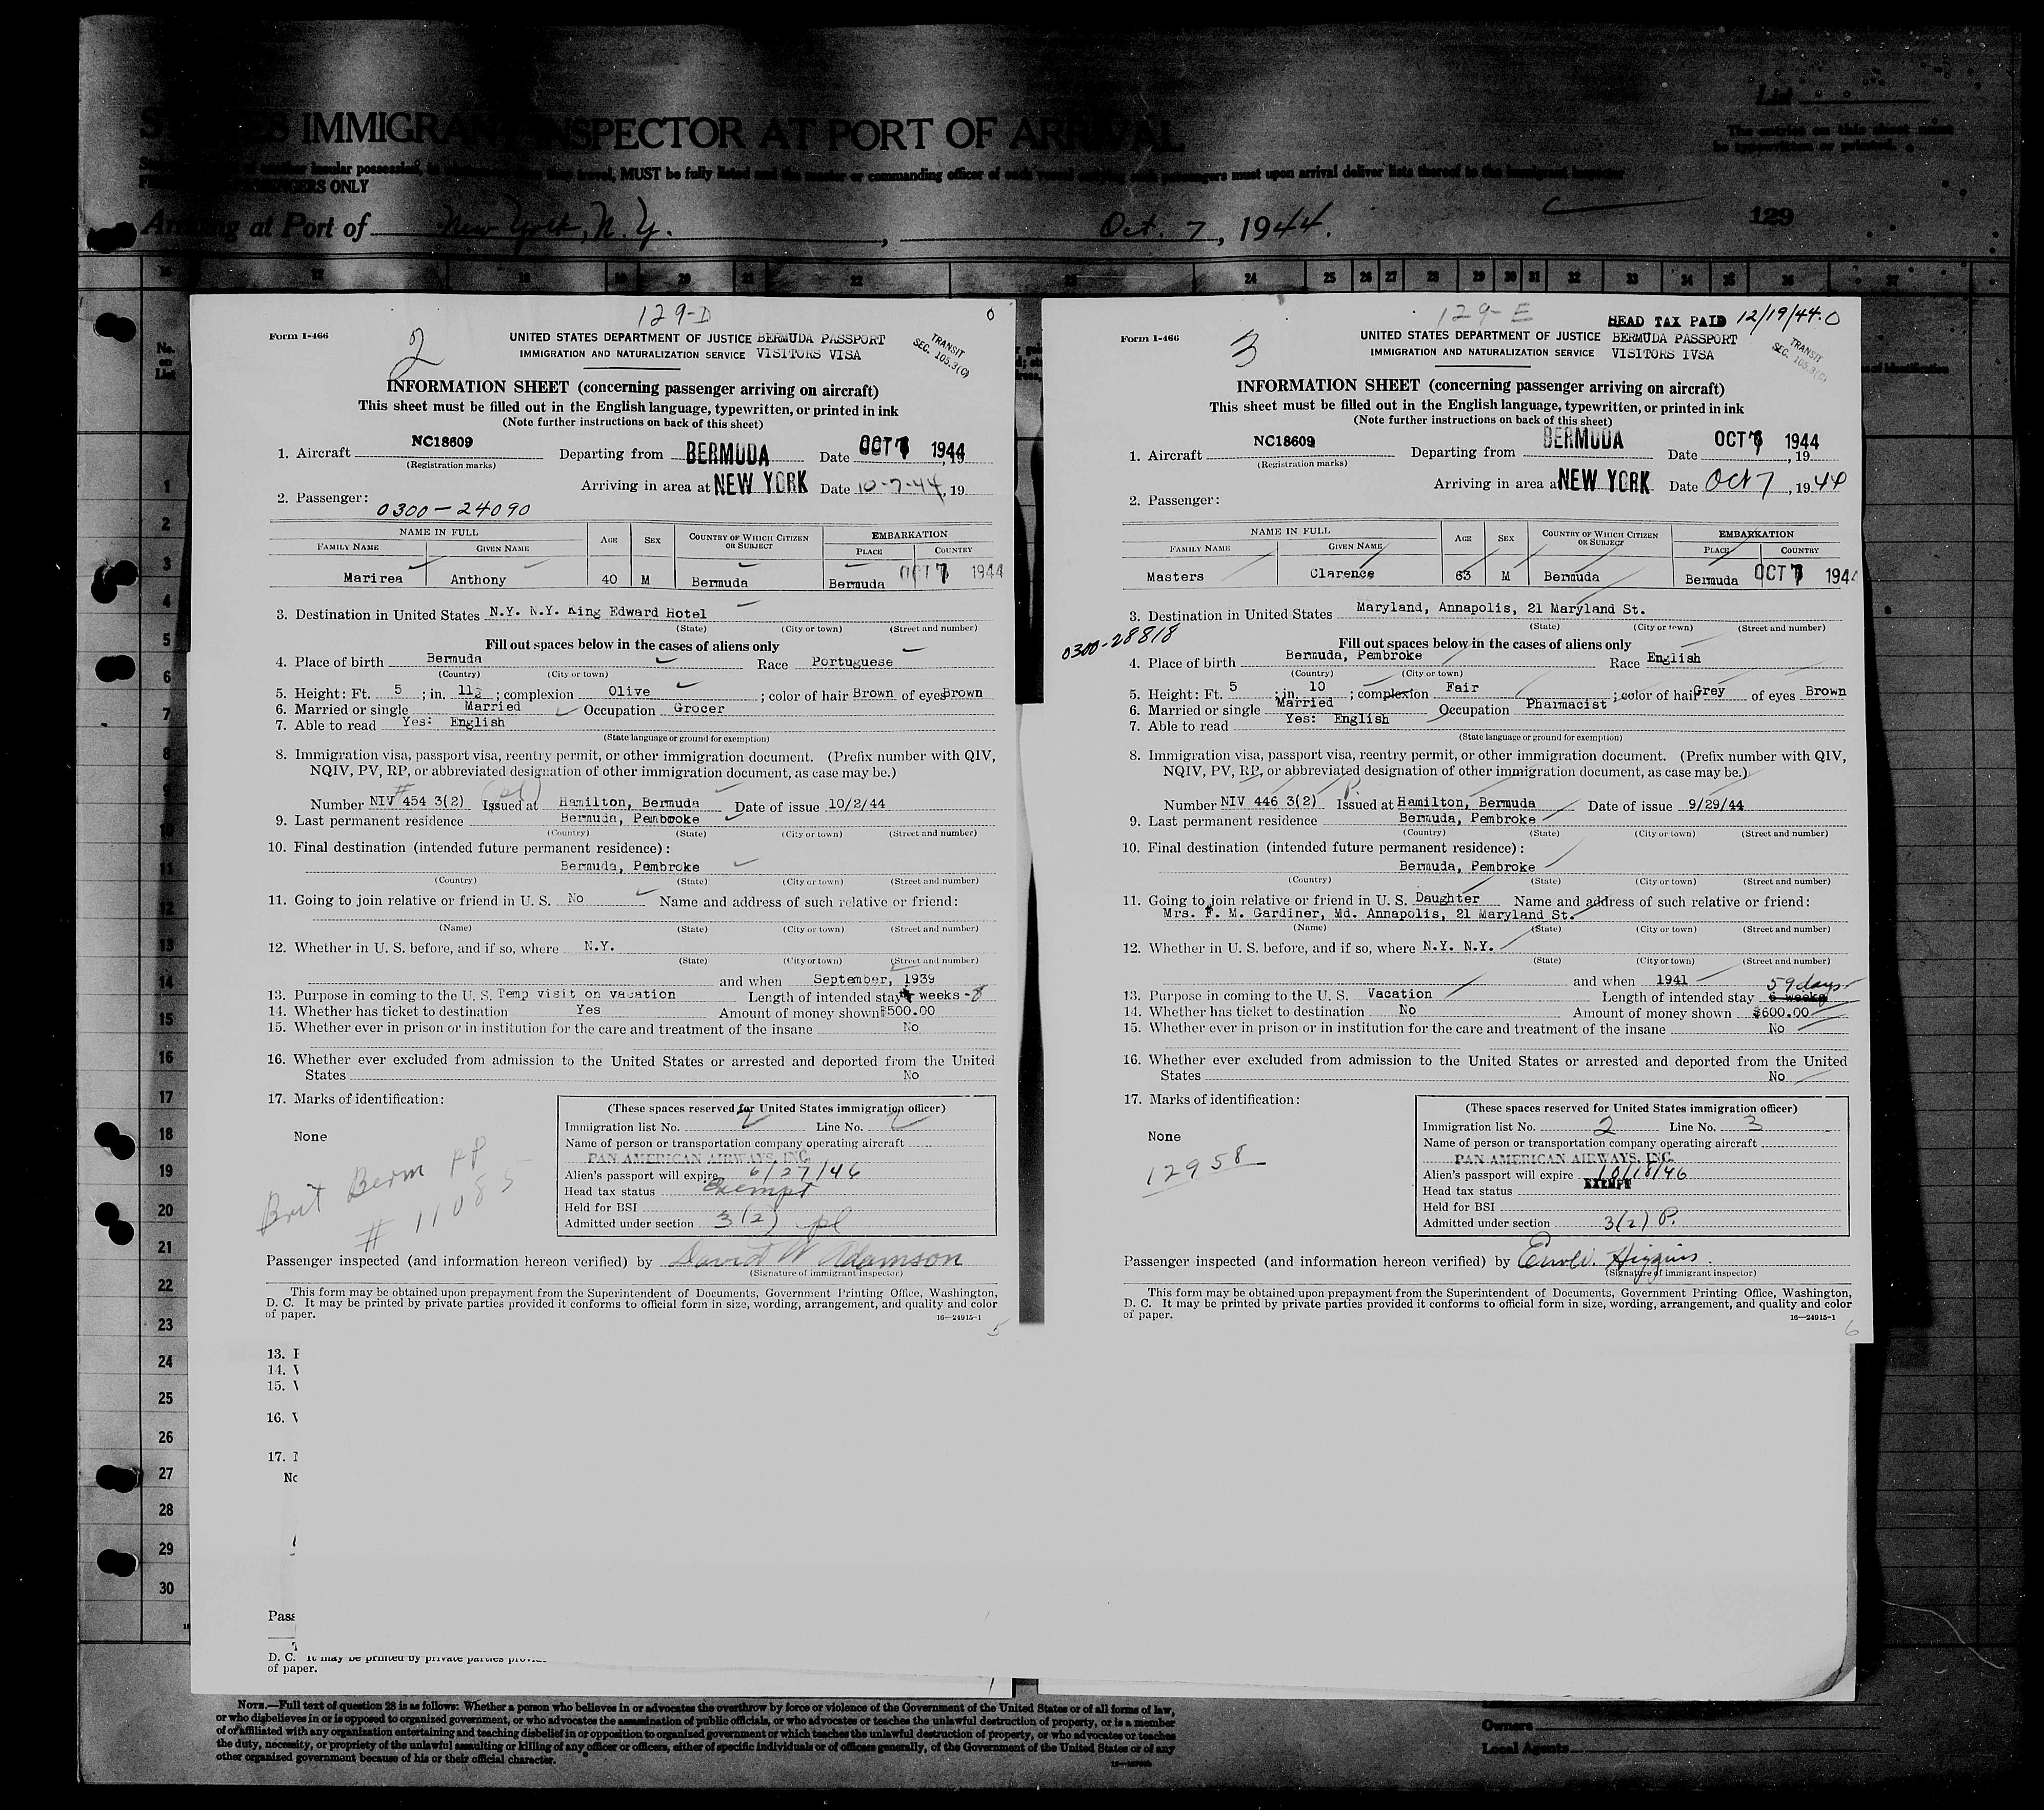 IMMIGRANT INSPECTOR AT PORT OF ARRIVAL
List
The entries on this sheet must
be typewritten or printed.
MUST be fully listed and the master or commanding officer of each vessel carrying such passengers must upon arrival deliver lists thereof to the immigrant inspector
PASSENGERS ONLY
Arriving at Port of New York, N.Y. , Oct. 7, 1944.
129
16 17 18 19 20 21 22 23 24 25 26 27 28 29 30 31 32 33 34 35 36 37
No. on List
1
2
3
4
5
6
7
8
9
10
11
12
13
14
15
16
17
18
19
20
21
22
23
24
25
26
27
28
29
30
129-D
0
Form I-466
2
UNITED STATES DEPARTMENT OF JUSTICE BERMUDA PASSPORT
IMMIGRATION AND NATURALIZATION SERVICE VISITORS VISA
TRANSIT
SEC. 105.3(C)
INFORMATION SHEET (concerning passenger arriving on aircraft)
This sheet must be filled out in the English language, typewritten, or printed in ink
(Note further instructions on back of this sheet)
1. Aircraft NC18609 Departing from BERMUDA Date OCT 7 1944, 19
(Registration marks)
Arriving in area at NEW YORK Date 10-7-44, 19
2. Passenger:
0300-24090
NAME IN FULL AGE SEX COUNTRY OF WHICH CITIZEN OR SUBJECT EMBARKATION
FAMILY NAME GIVEN NAME PLACE COUNTRY
Marirea Anthony 40 M Bermuda Bermuda OCT 7 1944
3. Destination in United States N.Y. N.Y. King Edward Hotel
(State) (City or town) (Street and number)
Fill out spaces below in the cases of aliens only
4. Place of birth Bermuda Race Portuguese
(Country) (City or town)
5. Height: Ft. 5 ; in. 11½ ; complexion Olive ; color of hair Brown of eyes Brown
6. Married or single Married Occupation Grocer
7. Able to read Yes: English
(State language or ground for exemption)
8. Immigration visa, passport visa, reentry permit, or other immigration document. (Prefix number with QIV,
NQIV, PV, RP, or abbreviated designation of other immigration document, as case may be.)
Number NIV #454 3(2) (pl) Issued at Hamilton, Bermuda Date of issue 10/2/44
9. Last permanent residence Bermuda, Pembroke
(Country) (State) (City or town) (Street and number)
10. Final destination (intended future permanent residence):
Bermuda, Pembroke
(Country) (State) (City or town) (Street and number)
11. Going to join relative or friend in U. S. No Name and address of such relative or friend:
(Name) (State) (City or town) (Street and number)
12. Whether in U. S. before, and if so, where N.Y.
(State) (City or town) (Street and number)
and when September, 1939
13. Purpose in coming to the U. S. Temp visit on vacation Length of intended stay weeks - 8
14. Whether has ticket to destination Yes Amount of money shown $500.00
15. Whether ever in prison or in institution for the care and treatment of the insane No
16. Whether ever excluded from admission to the United States or arrested and deported from the United
States No
17. Marks of identification:
None
Brit Berm PP
# 11085
(These spaces reserved for United States immigration officer)
Immigration list No. 2 Line No. 2
Name of person or transportation company operating aircraft
PAN AMERICAN AIRWAYS, INC.
Alien's passport will expire 6/27/46
Head tax status Exempt
Held for BSI
Admitted under section 3(2) pl
Passenger inspected (and information hereon verified) by David W Adamson
(Signature of immigrant inspector)
This form may be obtained upon prepayment from the Superintendent of Documents, Government Printing Office, Washington,
D. C. It may be printed by private parties provided it conforms to official form in size, wording, arrangement, and quality and color
of paper.
16—24915-1
5
129-E
HEAD TAX PAID 12/19/44. 0
Form I-466
3
UNITED STATES DEPARTMENT OF JUSTICE BERMUDA PASSPORT
IMMIGRATION AND NATURALIZATION SERVICE VISITORS IVSA
TRANSIT
SEC. 105.3(C)
INFORMATION SHEET (concerning passenger arriving on aircraft)
This sheet must be filled out in the English language, typewritten, or printed in ink
(Note further instructions on back of this sheet)
1. Aircraft NC18609 Departing from BERMUDA Date OCT 7 1944, 19
(Registration marks)
Arriving in area at NEW YORK Date Oct 7, 1944
2. Passenger:
NAME IN FULL AGE SEX COUNTRY OF WHICH CITIZEN OR SUBJECT EMBARKATION
FAMILY NAME GIVEN NAME PLACE COUNTRY
Masters Clarence 63 M Bermuda Bermuda OCT 7 1944
3. Destination in United States Maryland, Annapolis, 21 Maryland St.
(State) (City or town) (Street and number)
0300-28818
Fill out spaces below in the cases of aliens only
4. Place of birth Bermuda, Pembroke Race English
(Country) (City or town)
5. Height: Ft. 5 ; in. 10 ; complexion Fair ; color of hair Grey of eyes Brown
6. Married or single Married Occupation Pharmacist
7. Able to read Yes: English
(State language or ground for exemption)
8. Immigration visa, passport visa, reentry permit, or other immigration document. (Prefix number with QIV,
NQIV, PV, RP, or abbreviated designation of other immigration document, as case may be.)
Number NIV 446 3(2) P. Issued at Hamilton, Bermuda Date of issue 9/29/44
9. Last permanent residence Bermuda, Pembroke
(Country) (State) (City or town) (Street and number)
10. Final destination (intended future permanent residence):
Bermuda, Pembroke
(Country) (State) (City or town) (Street and number)
11. Going to join relative or friend in U. S. Daughter Name and address of such relative or friend:
Mrs. F. M. Gardiner, Md. Annapolis, 21 Maryland St.
(Name) (State) (City or town) (Street and number)
12. Whether in U. S. before, and if so, where N.Y. N.Y.
(State) (City or town) (Street and number)
and when 1941
59 days
13. Purpose in coming to the U. S. Vacation Length of intended stay 6 weeks
14. Whether has ticket to destination No Amount of money shown $600.00
15. Whether ever in prison or in institution for the care and treatment of the insane No
16. Whether ever excluded from admission to the United States or arrested and deported from the United
States No
17. Marks of identification:
None
12958
(These spaces reserved for United States immigration officer)
Immigration list No. 2 Line No. 3
Name of person or transportation company operating aircraft
PAN AMERICAN AIRWAYS, INC.
Alien's passport will expire 10/18/46
Head tax status EXEMPT
Held for BSI
Admitted under section 3(2) P.
Passenger inspected (and information hereon verified) by Higgins.
(Signature of immigrant inspector)
This form may be obtained upon prepayment from the Superintendent of Documents, Government Printing Office, Washington,
D. C. It may be printed by private parties provided it conforms to official form in size, wording, arrangement, and quality and color
of paper.
16—24915-1
6
13.
14.
15.
16.
17.
Pass
D. C. It may be printed by private parties
of paper.
NOTE.—Full text of question 28 is as follows: Whether a person who believes in or advocates the overthrow by force or violence of the Government of the United States or of all forms of law,
or who disbelieves in or is opposed to organized government, or who advocates the assassination of public officials, or who advocates or teaches the unlawful destruction of property, or is a member
of or affiliated with any organization entertaining and teaching disbelief in or opposition to organized government or which teaches the unlawful destruction of property, or who advocates or teaches
the duty, necessity, or propriety of the unlawful assaulting or killing of any officer or officers, either of specific individuals or of officers generally, of the Government of the United States or of any
other organized government because of his or their official character.
Owners
Local Agents